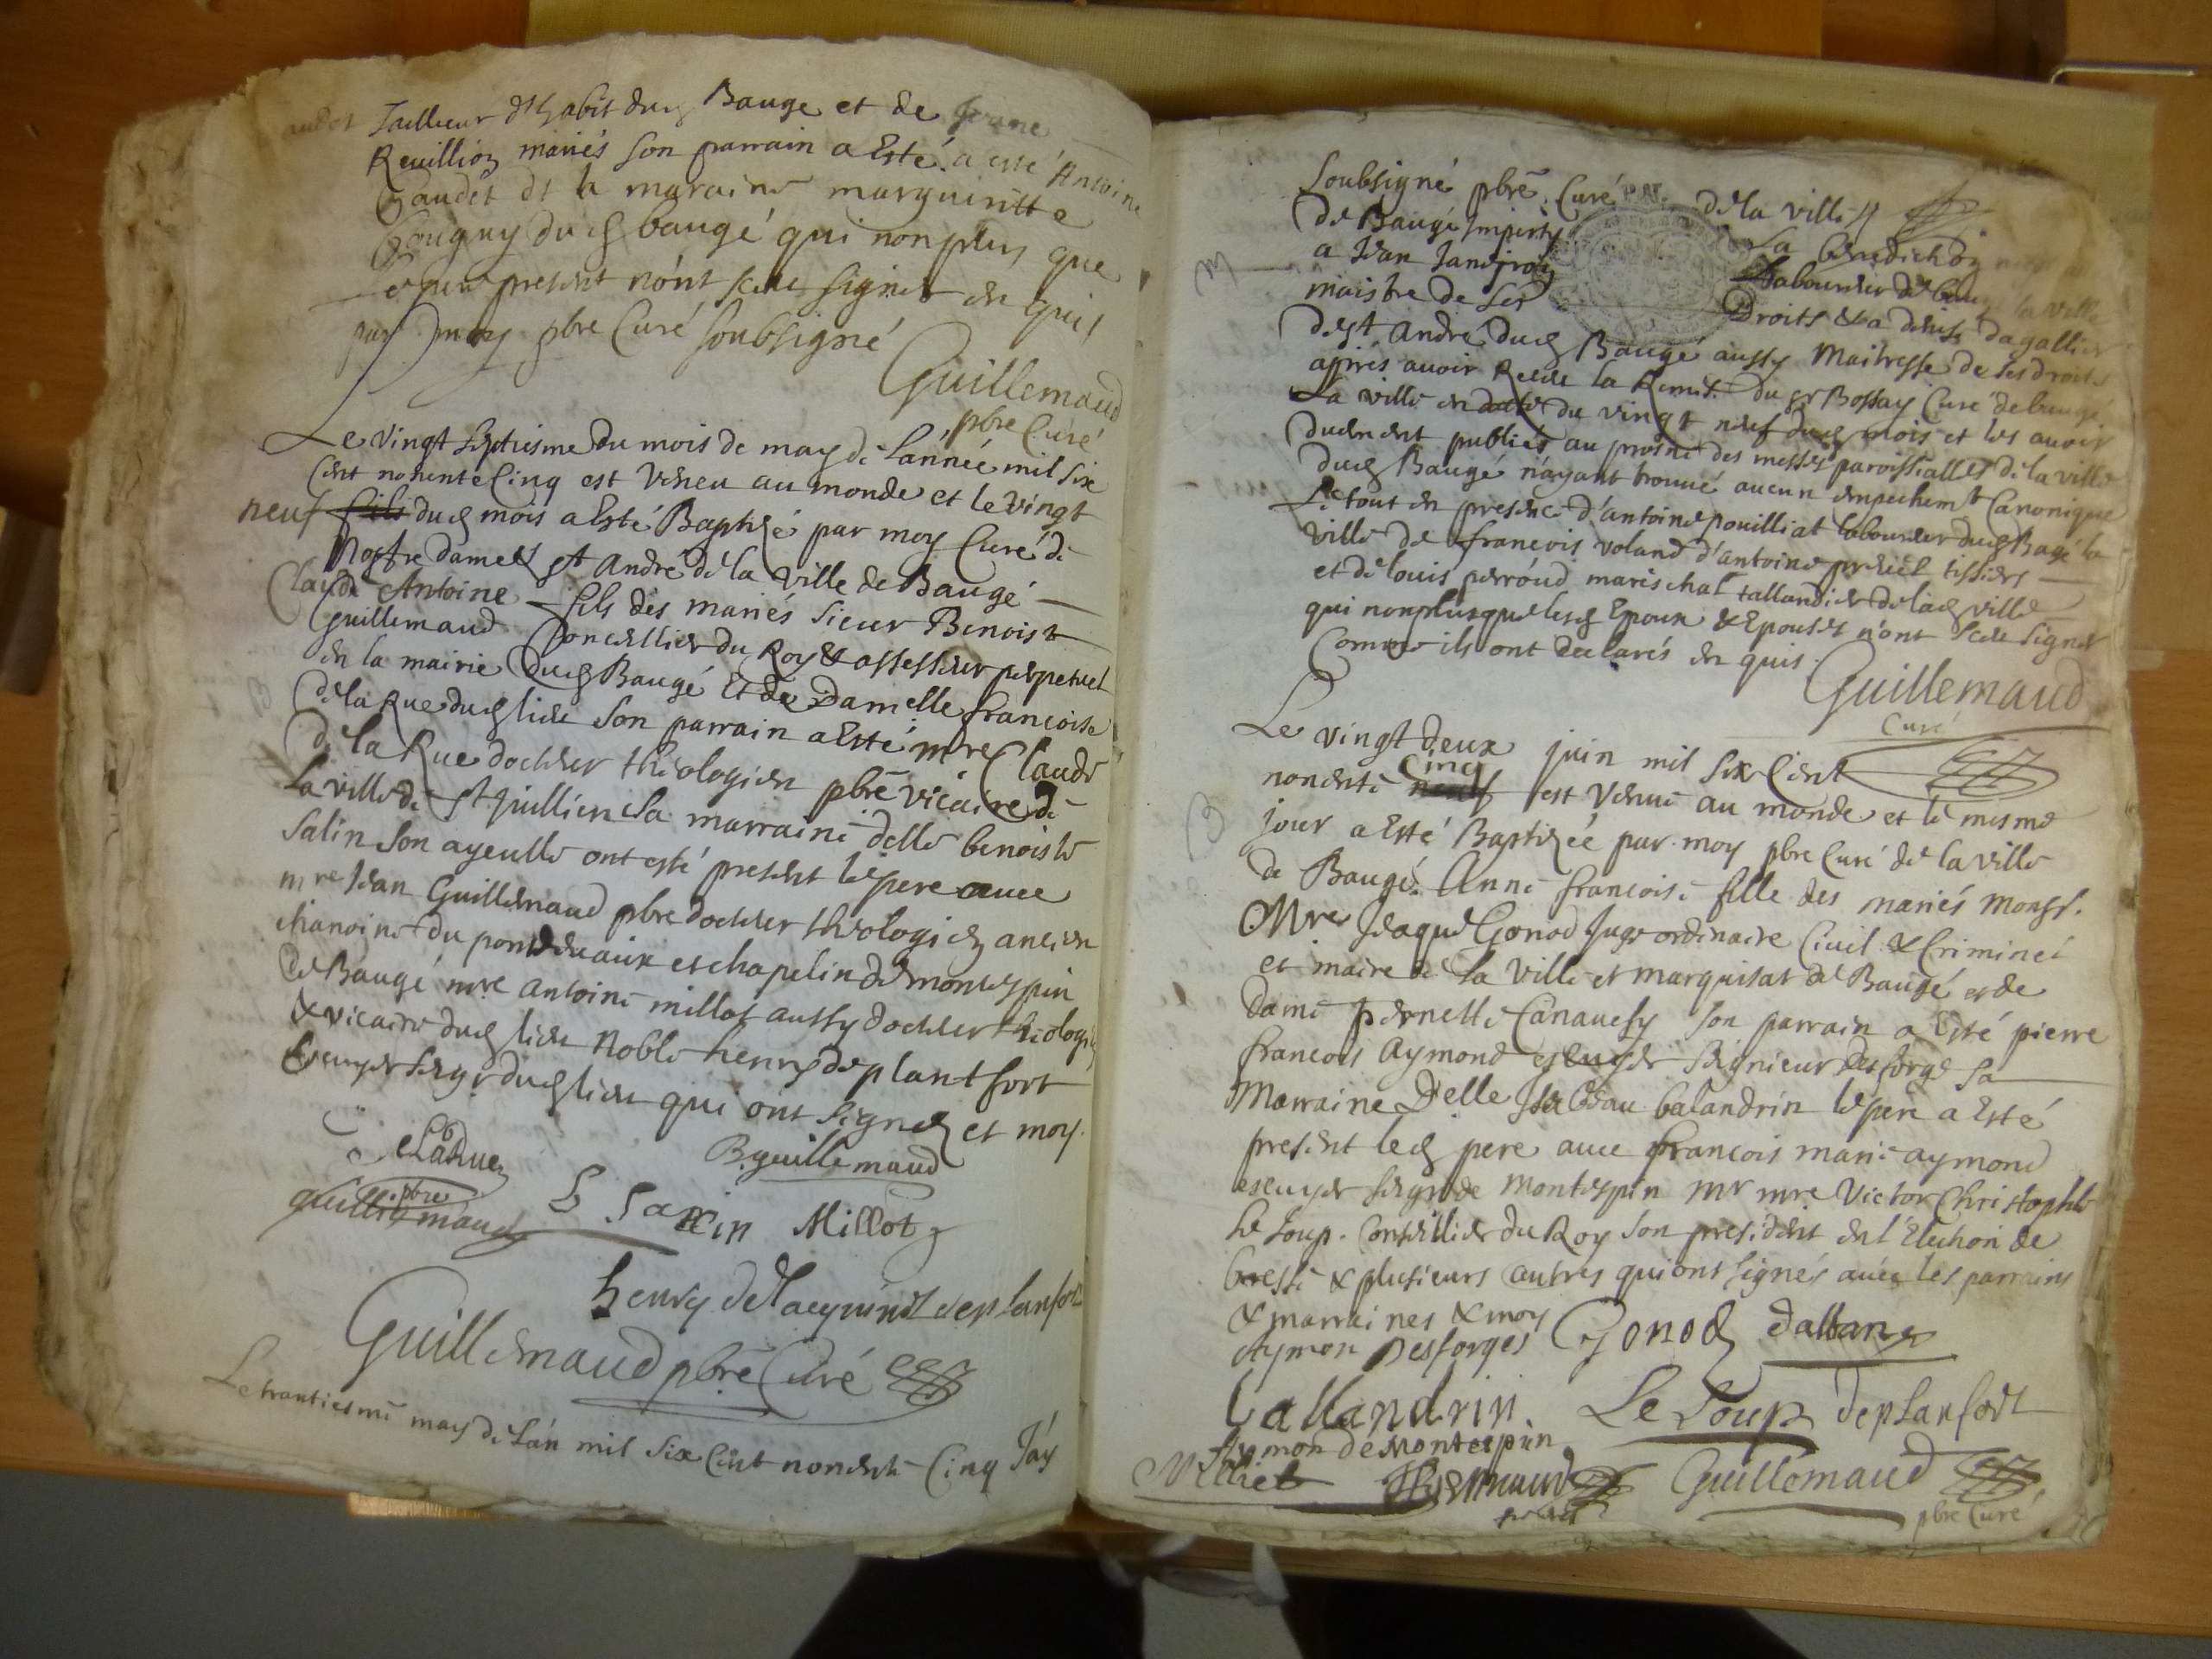 Tailleur d'habit dud Bauge et de Jeanne
Reuillion mariés son parrain a Esté a esté Antoine
Gaudet et la maraine marguiritte
Gougny dud baugé qui non plus que
le pere present n'ont sceu signer en quis
par moy pbre Curé soubsigné
Guillemaud
pbre Curé
Le vingt septiesme du mois de may de Lannée mil six
Cent nonente Cinq est veneu au monde et le vingt
neuf dud mois a Esté Baptizé par moy Curé de
Nostre dame et st André de la ville de Baugé
Claude Antoine fils des mariés sieur Benoist
Guillemaud Conceillier du Roy & assesseur perpetuel
en la mairie dud Baugé Et de Damelle francoise
de la Rue dud lieu son parrain a Esté mre Claude
de la Rue docteur theologien pbre vicaire de
la ville de st Juillien sa marraine delle benoiste
Salin son ayeulle ont esté present le pere avec
mre Jean Guillemaud pbre docteur theologien ancien
chanoine du pontdevaux et chapelin de montespin
de Baugé mre antoine millot aussy docteur theologien
& vicaire dud lieu noble henry de plantfort
Escuyer seigr dud lieu qui ont signes et moy
DeLaRue
pbre
B. guillemaud
guillemaud
B Salin Millot
henry de deplanfort
Guillemaud pbre Curé
Le trantiesme may de Lan mil six Cent nonente Cinq Jay
soubsigné pbre Curé de la ville
de Baugé Imparty La benediction
a Jean Jandjroy Labourier de
maistre de ses Droits & a denise dagallier
de st André dud Baugé aussy Maitresse de ses droits
apprés avoir Receu la Remise du sr Bossay Curé de baugé
La ville en datte du vingt neuf dud mois et les avoir
duement publiés au prosne des messes paroissialles de la ville
dud Baugé n'ayant trouvé aucun empechemt Canonique
Le tout en presence d'antoine pouilliat laboureur dud Bagé la
ville de francois voland d'antoine tissiers
et de louis perroud marischal tallandier de lad ville
qui non plus que lesd Epoux & Epouses n'ont sceu signer
Comme ils ont declarés en quis.
Guillemaud
Curé
Le vingt deux juin mil six Cent
nonente Cinq est venue au monde et le mesme
jour a Esté Baptizée par moy pbre Curé de la ville
de Baugé. Anne francoise fille des mariés Monsr.
Mre Jaque Gonod Juge ordinaire Civil & Criminel
et maire de la ville et marquisat de Baugé et de
dame pernette Canavesy son parrain a Esté pierre
francois Aymond escuyer seignieur des forge sa
Marraine Delle Isabeau balandrin le pere a Esté
present led pere avec francois marie aymond
escuyer seigr de Montespin Mr mre Victor Christophle
le Loup. Conseillier du Roy son president en l'Election de
bresse & plusieurs autres qui ont signés avec les parrains
& marraines & moy
Aymon Desforges Gonod dalbane
ballandrin. Le Loup deplanfort
Aymon de Montespin
Guillemaud
pbre Curé